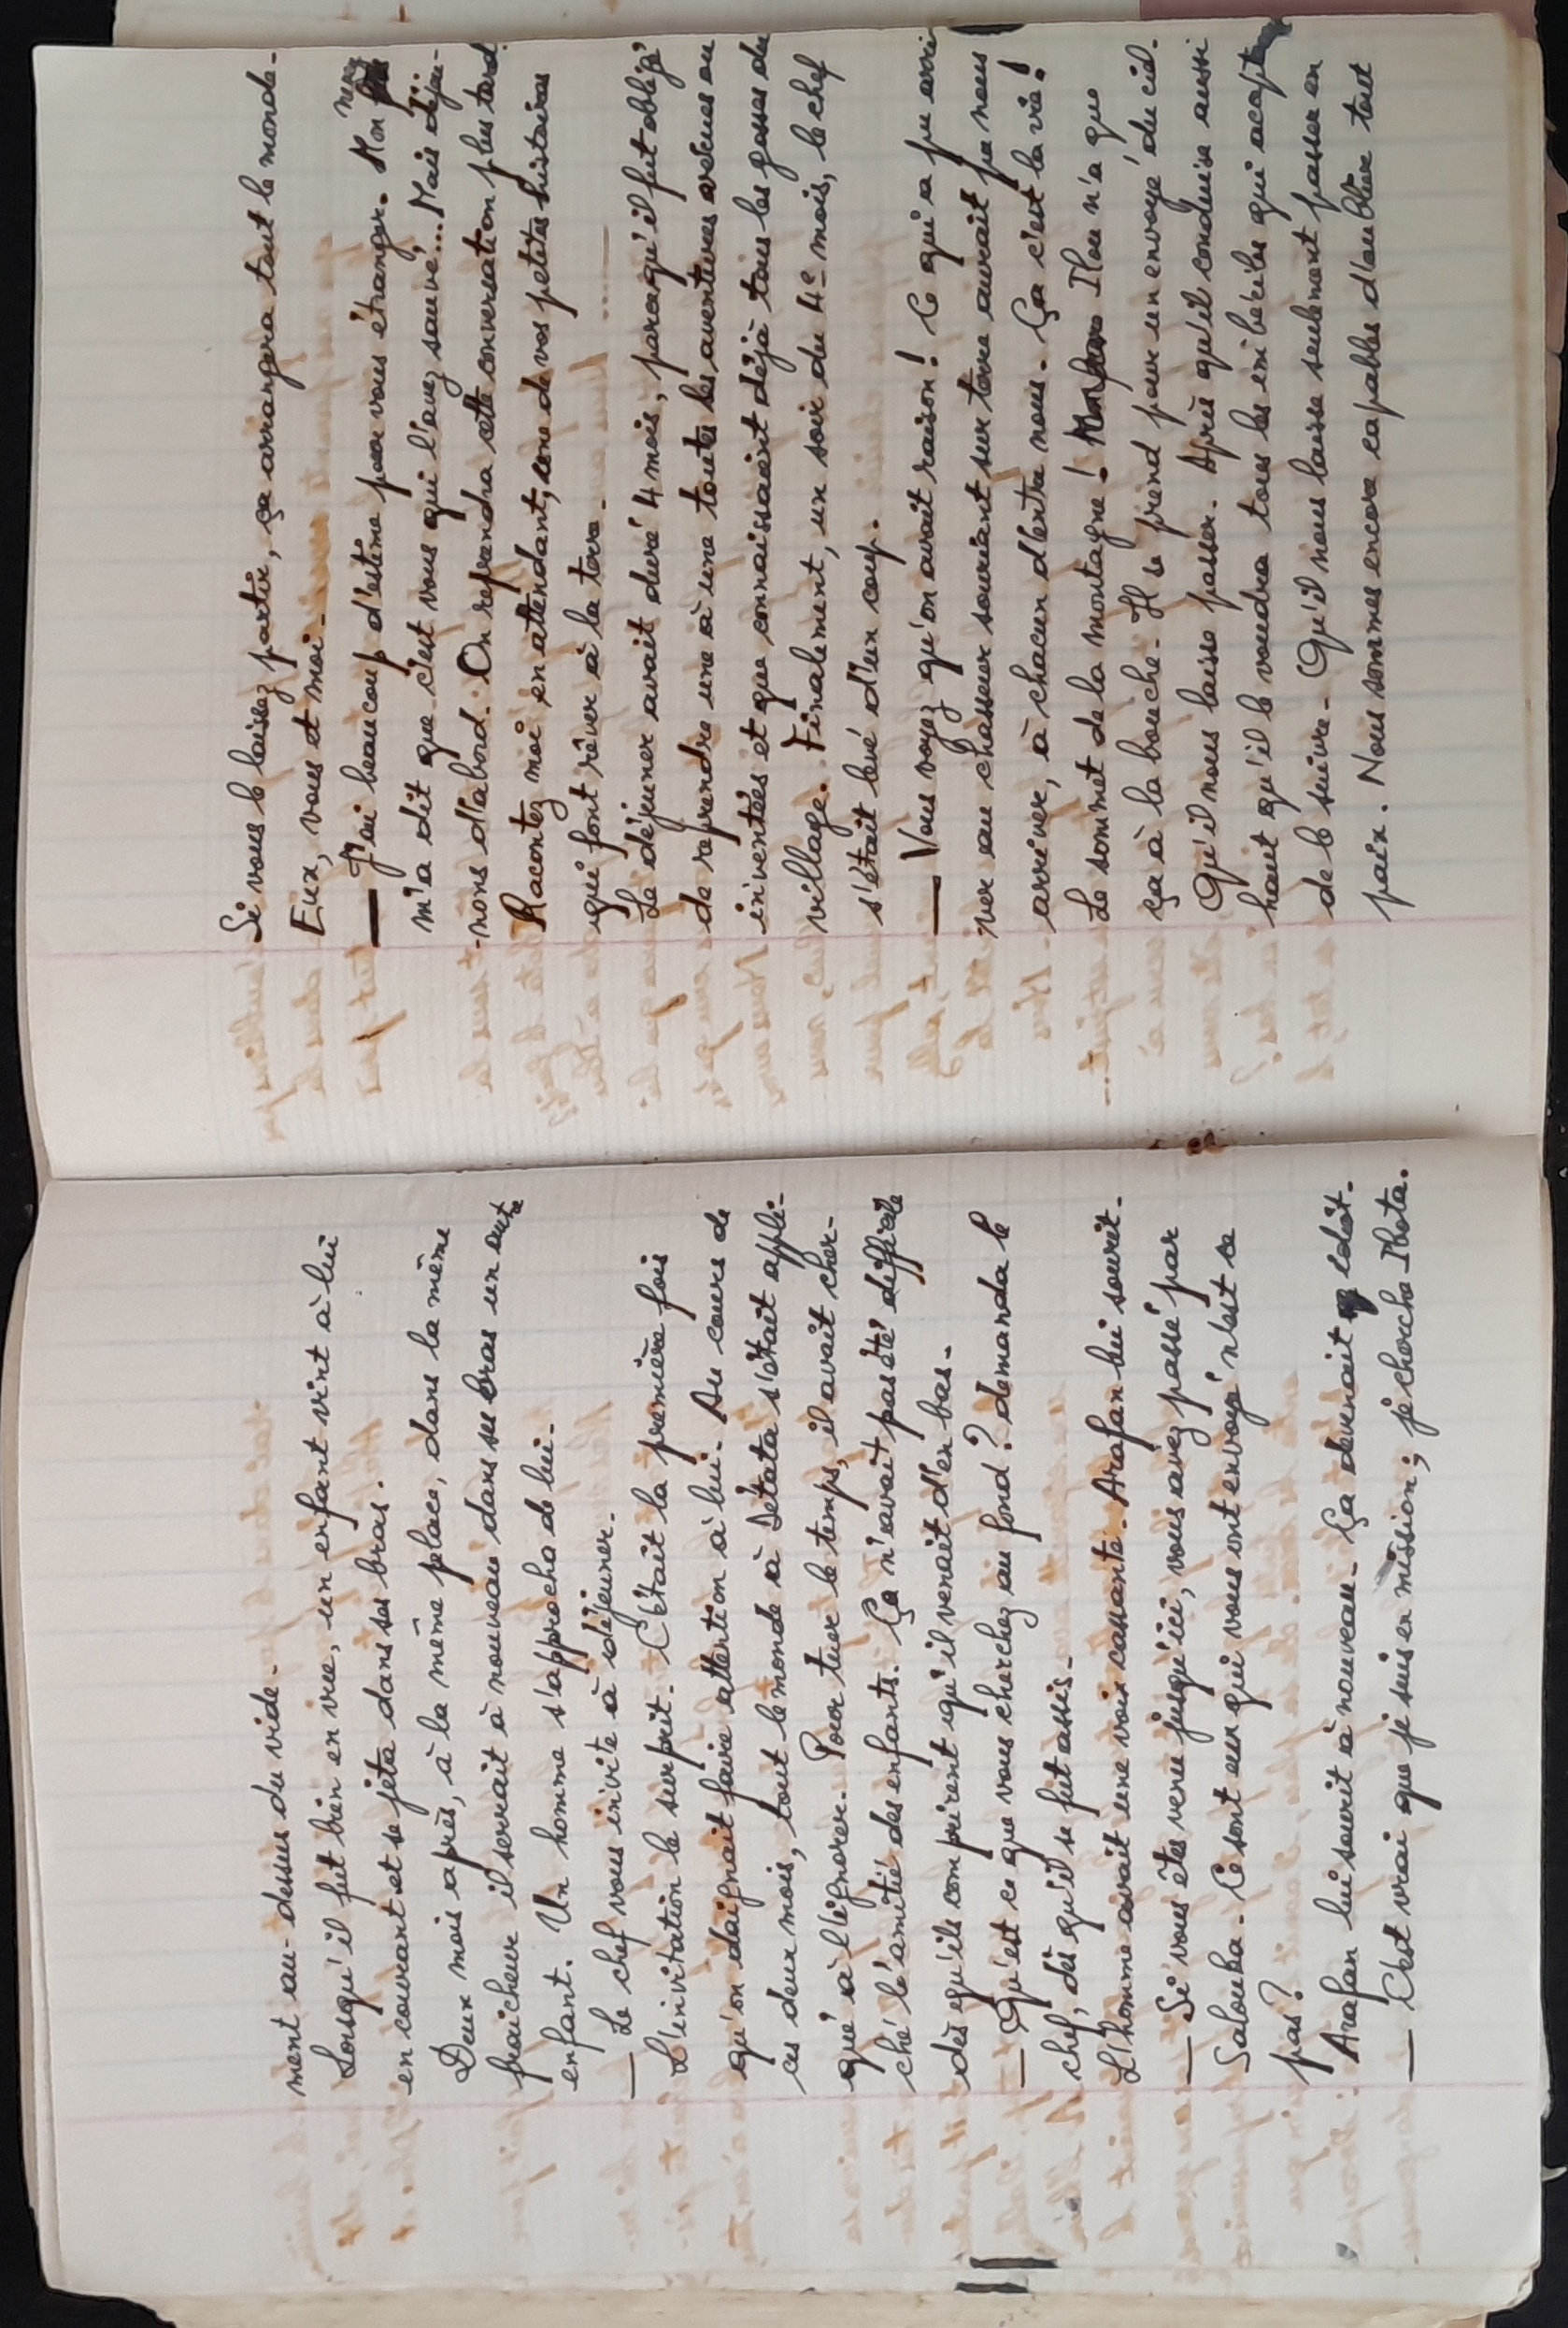 ment au-dessus du vide.
Lorsqu'il fut bien en vue, un enfant vint à lui
en courant et se jeta dans ses bras.
Deux mois après, à la même place, dans la même
fraicheur il serrait à nouveau dans ses bras un autre
enfant. Un homme s'approcha de lui.
— Le chef vous invite à déjeuner.
L'invitation le surprit. C'était la première fois
qu'on daignait faire attention à lui. Au cours de
ces deux mois, tout le monde à Sétata s'était appli-
qué à l'ignorer. Pour tuer le temps, il avait cher-
ché l'amitié des enfants. Ça n'avait pas été difficile
dès qu'ils comprirent qu'il venait d'en bas.
— Qu'est ce que vous cherchez au fond ? demanda le
chef, dès qu'il se fut assis.
L'homme avait une voix cassante. Arafan lui sourit.
— Si vous êtes venu jusqu'ici, vous avez passé par
Salouba. Ce sont eux qui vous ont envoyé n'est ce
pas ?
Arafan lui sourit à nouveau. Ça devenait idiot.
— C'est vrai que je suis en mission ; je cherche Ilota.
Si vous le laissez partir, ça arrangera tout le monde.
Eux, vous et moi.
— J'ai beaucoup d'estime pour vous étranger. Mon neveu
m'a dit que c'est vous qui l'avez sauvé... Mais déjeu-
-nons d'abord. On reprendra cette conversation plus tard.
Racontez moi en attendant, une de vos petites histoires
qui font rêver à la terre.
Le déjeuner avait duré 4 mois, parcequ'il fut obligé
de reprendre une à une toutes les aventures vécues ou
inventées et que connaissaient déjà tous les gosses du
village. Finalement, un soir du 4e mois, le chef
s'était levé d'un coup.
— Vous voyez qu'on avait raison ! Ce qui a pu arri
ver au chasseur souriant sur terre aurait pu nous
arriver, à chacun d'entre nous. Ça c'est la vie !
Le sommet de la montagne ! Ilou n'a que
ça à la bouche. Il se prend pour un envoyé du ciel.
Qu'il nous laisse passer. Après qu'il conduise aussi
haut qu'il le voudra tous les imbéciles qui acceptent
de le suivre. Qu'il nous laisse seulement passer en
paix. Nous sommes encore capables d'oublier tout